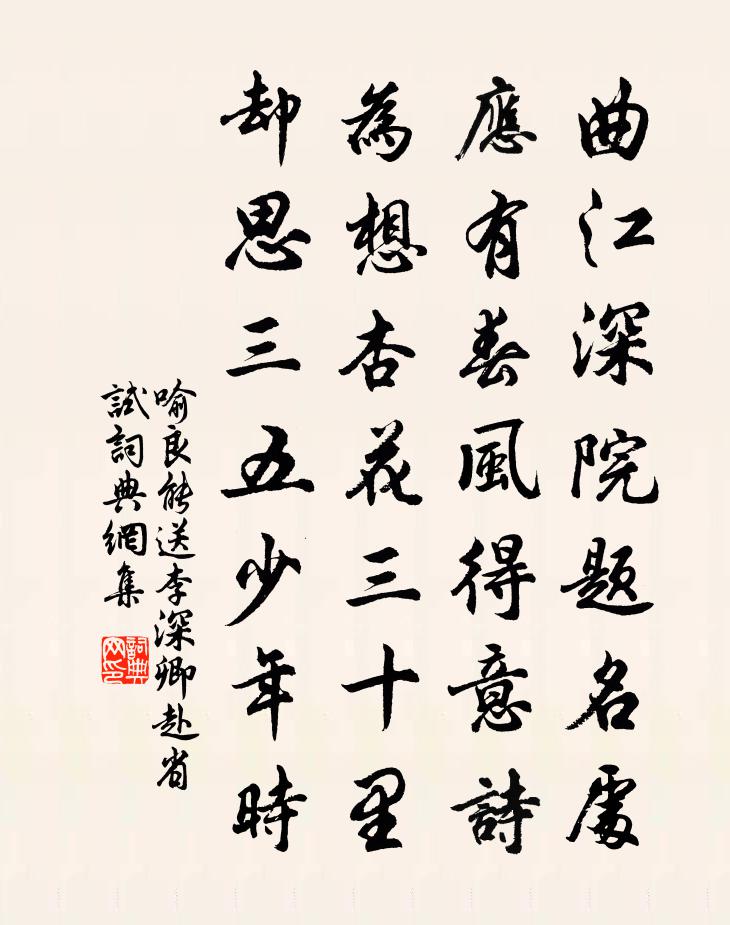 曲江深院题名處
應有春風得意詩
為想杏花三十里
却思三五少年時
喻良能送李深卿赴省
試詞典網集
詞典
网印